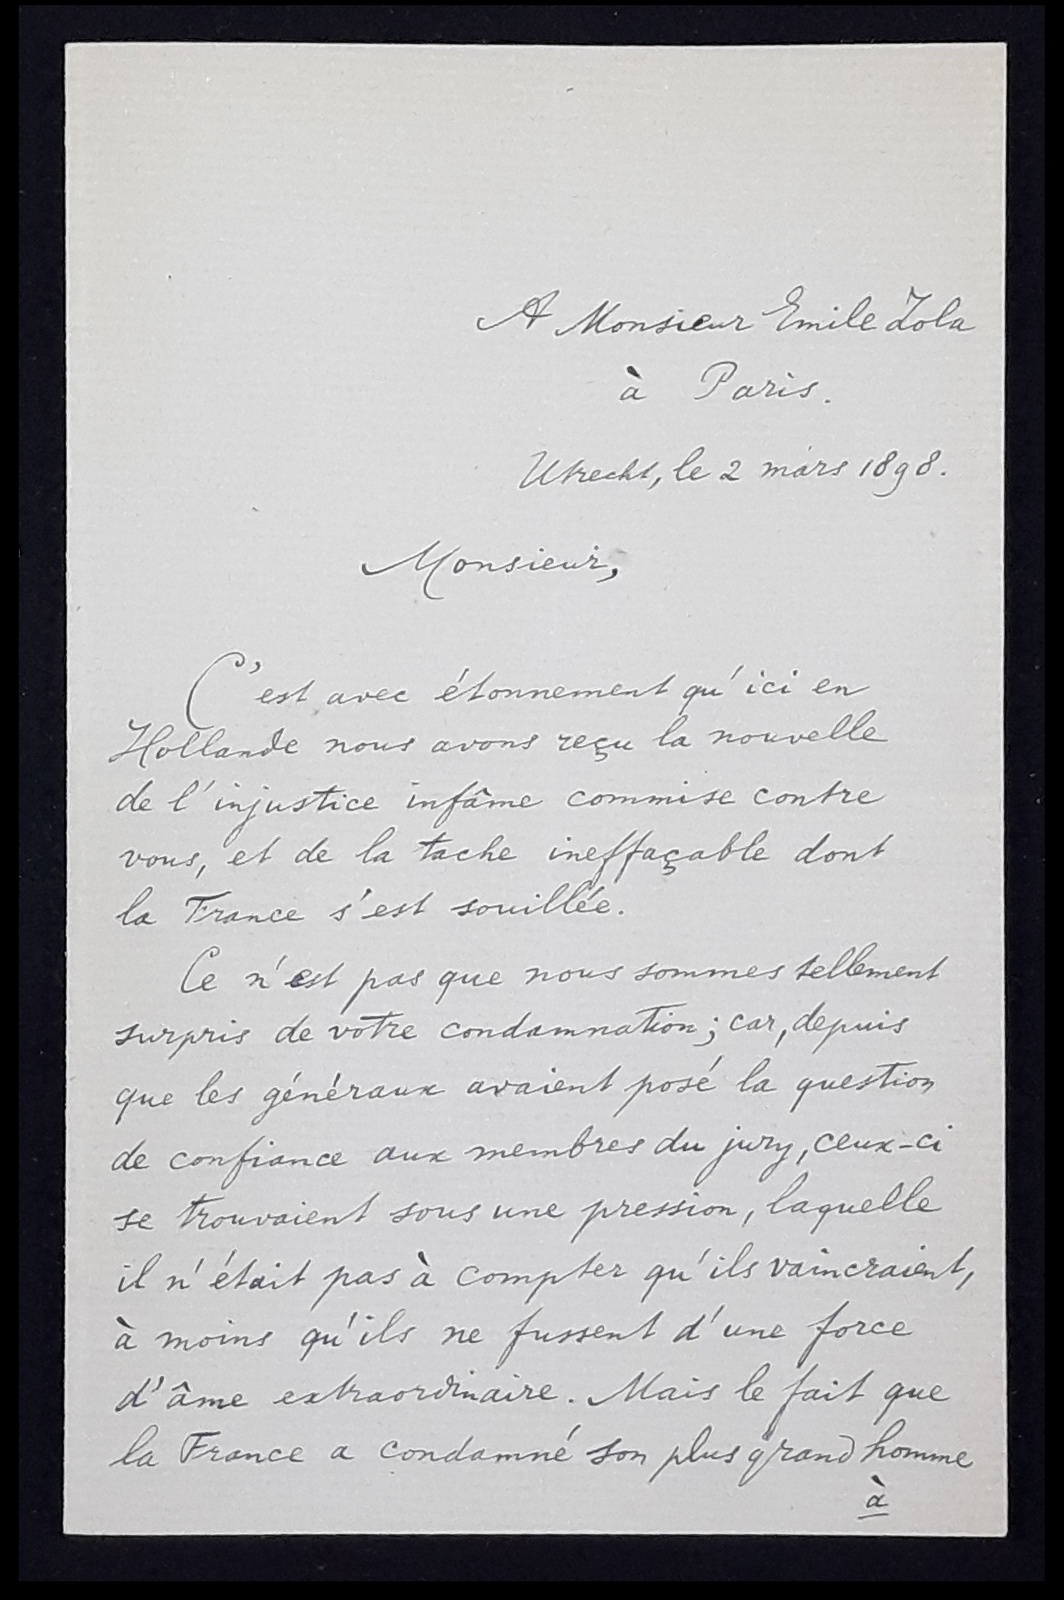 A Monsieur Emile Zola
à Paris.
Utrecht, le 2 mars 1898.
Monsieur,
C'est avec étonnement qu'ici en
Hollande nous avons reçu la nouvelle
de l'injustice infâme commise contre
vous, et de la tache ineffaçable dont
la France s'est souillée.
Ce n'est pas que nous sommes tellement
surpris de votre condamnation; car, depuis
que les généraux avaient posé la question
de confiance aux membres du jury, ceux-ci
se trouvaient sous une pression, laquelle
il n'était pas à compter qu'ils vaincraient,
à moins qu'ils ne fussent d'une force
d'âme extraordinaire. Mais le fait que
la France a condamné son plus grand homme
à